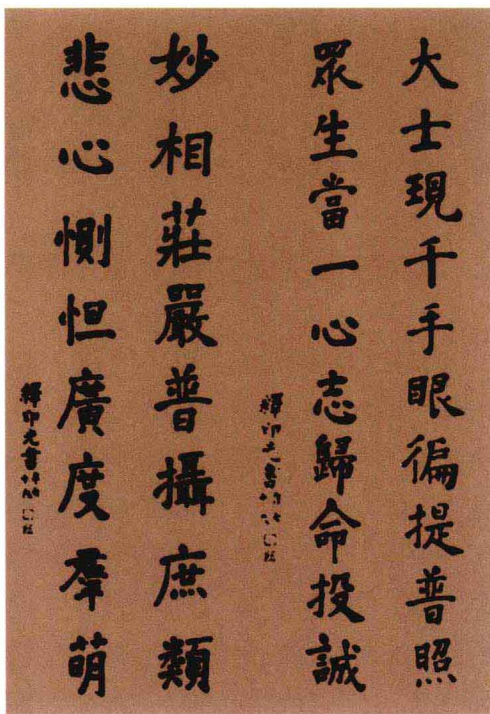 大士現千手眼徧提普照
眾生當一心志歸命投誠
釋印光書
妙相莊嚴普攝庶類
悲心惻怛廣度羣萌
釋印光書